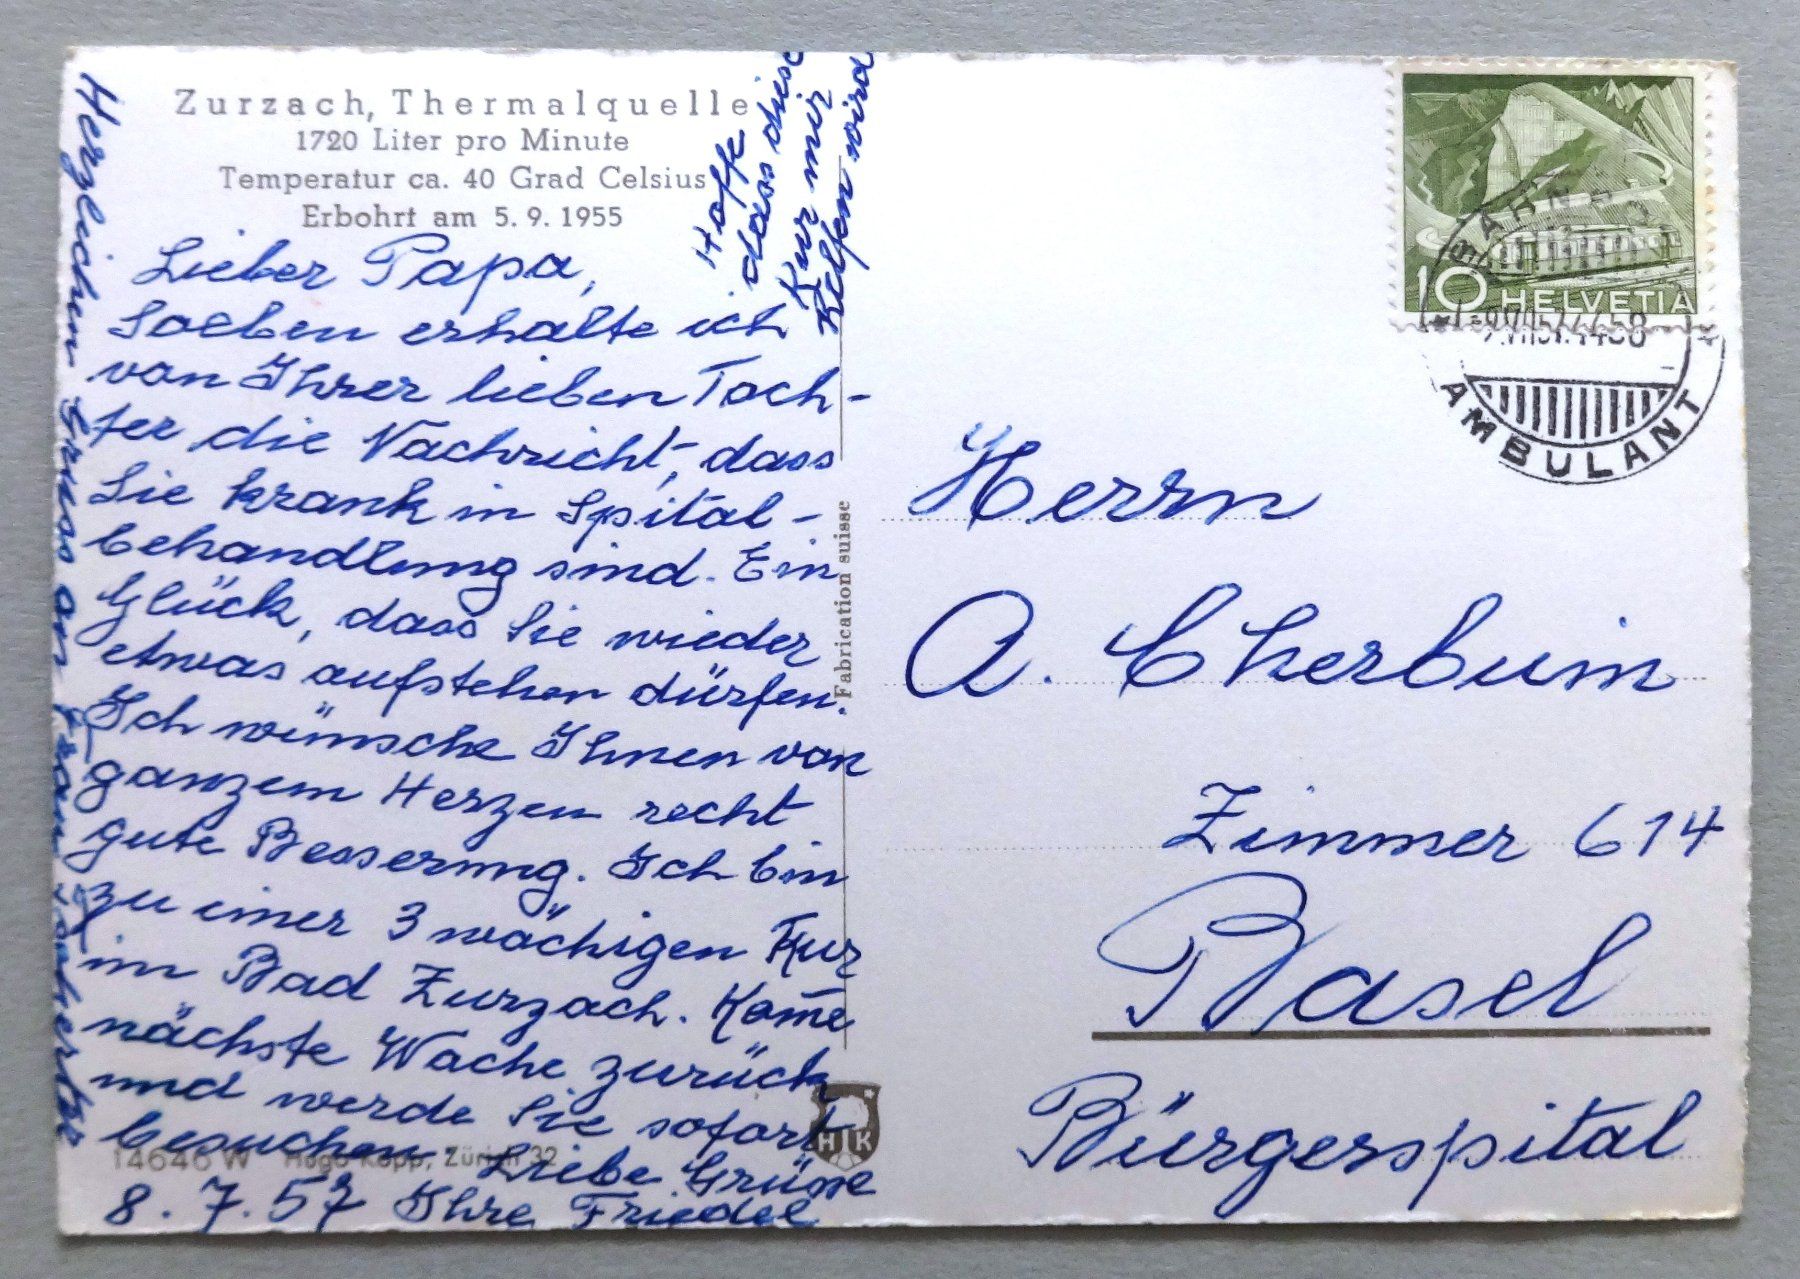 Zurzach, Thermalquelle
1720 Liter pro Minute
Temperatur ca. 40 Grad Celsius
Erbohrt am 5. 9. 1955
Lieber Papa,
Soeben erhalte ich
von Ihrer lieben Toch-
ter die Nachricht, dass
Sie krank in Spital-
behandlung sind. Ein
Glück, dass Sie wieder
etwas aufstehen dürfen.
Ich wünsche Ihnen von
ganzem Herzen recht
gute Besserung. Ich bin
zu einer 3 wöchigen Kur
im Bad Zurzach. Kom̄e
nächste Woche zurück
und werde Sie sofort
besuchen. Liebe Grüsse
8. 7. 57 Ihre Friedel
Hoffe
dass diese
Kur mir
helfen wird
Herzlichen Gruss an
14646 W Hugo Kopp, Zürich 32
Fabrication suisse
HK
10 HELVETIA
AMBULANT
Herrn
A. Cherbuin
Zimmer 614
Basel
Bürgerspital